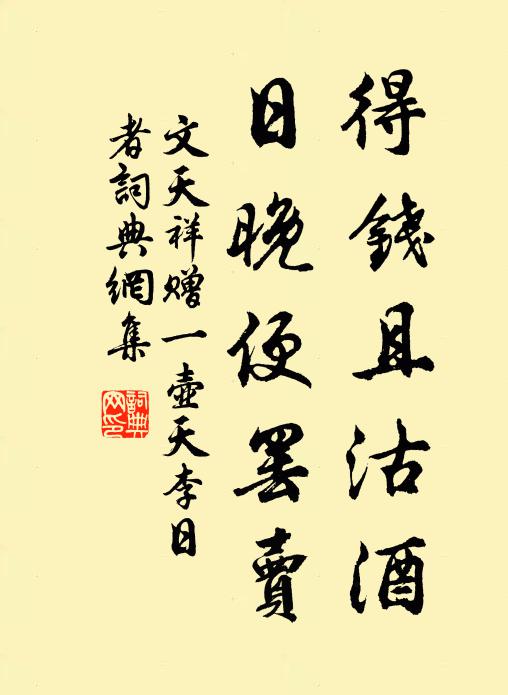 得錢且沽酒
日晚便罷賣
文天祥赠一壺天李日
者詞典網集
詞典
网印